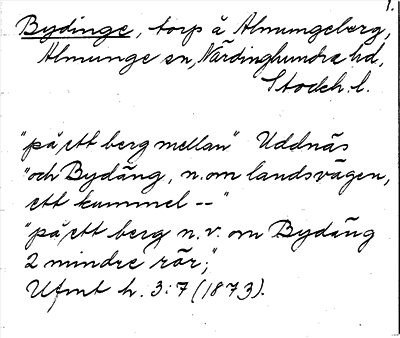 1.
Bydinge, torp å Almungeberg,
Almunge sn, Närdinghundra hd,
Stockh. l.
"på ett berg mellan" Uddnäs
"och Bydäng, n. om landsvägen,
ett kummel --"
"på ett berg n. v. om Bydäng
2 mindre rör;"
Ufmt h. 3:7 (1873).